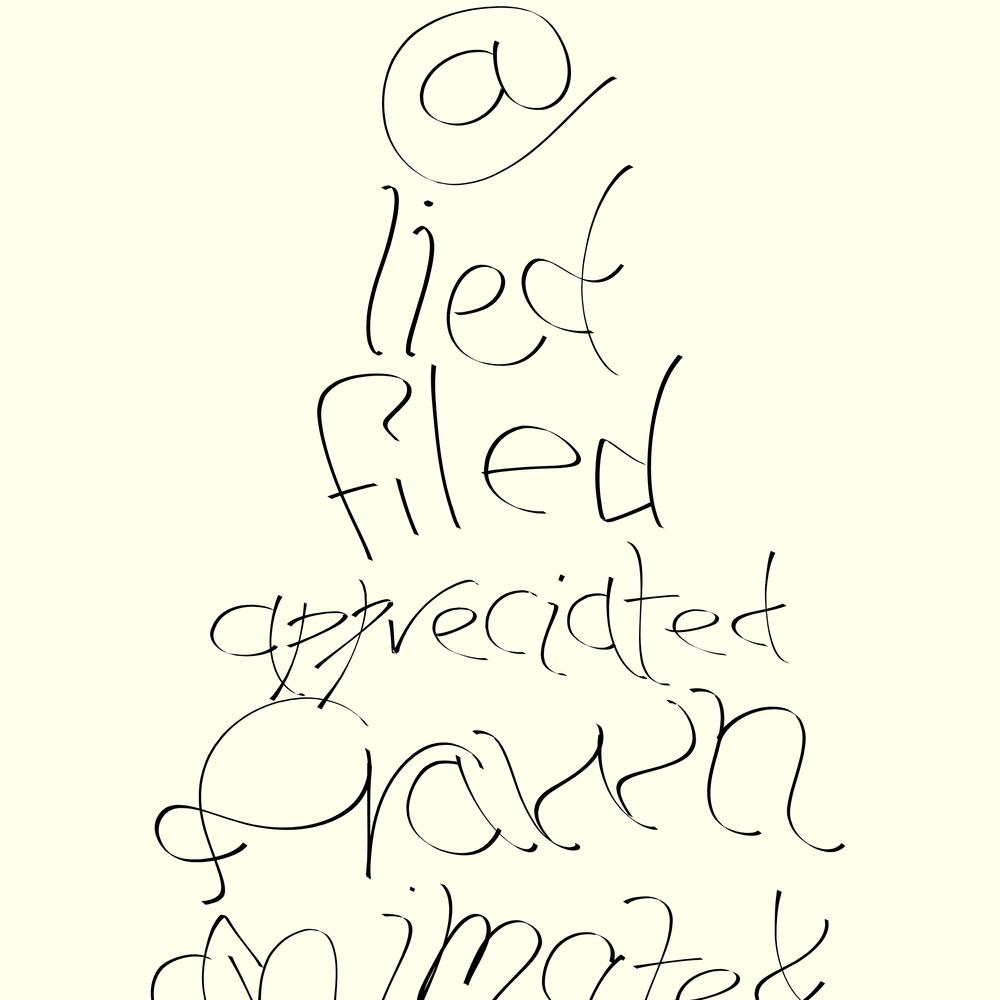 @
lied
filed
appreciated
animated